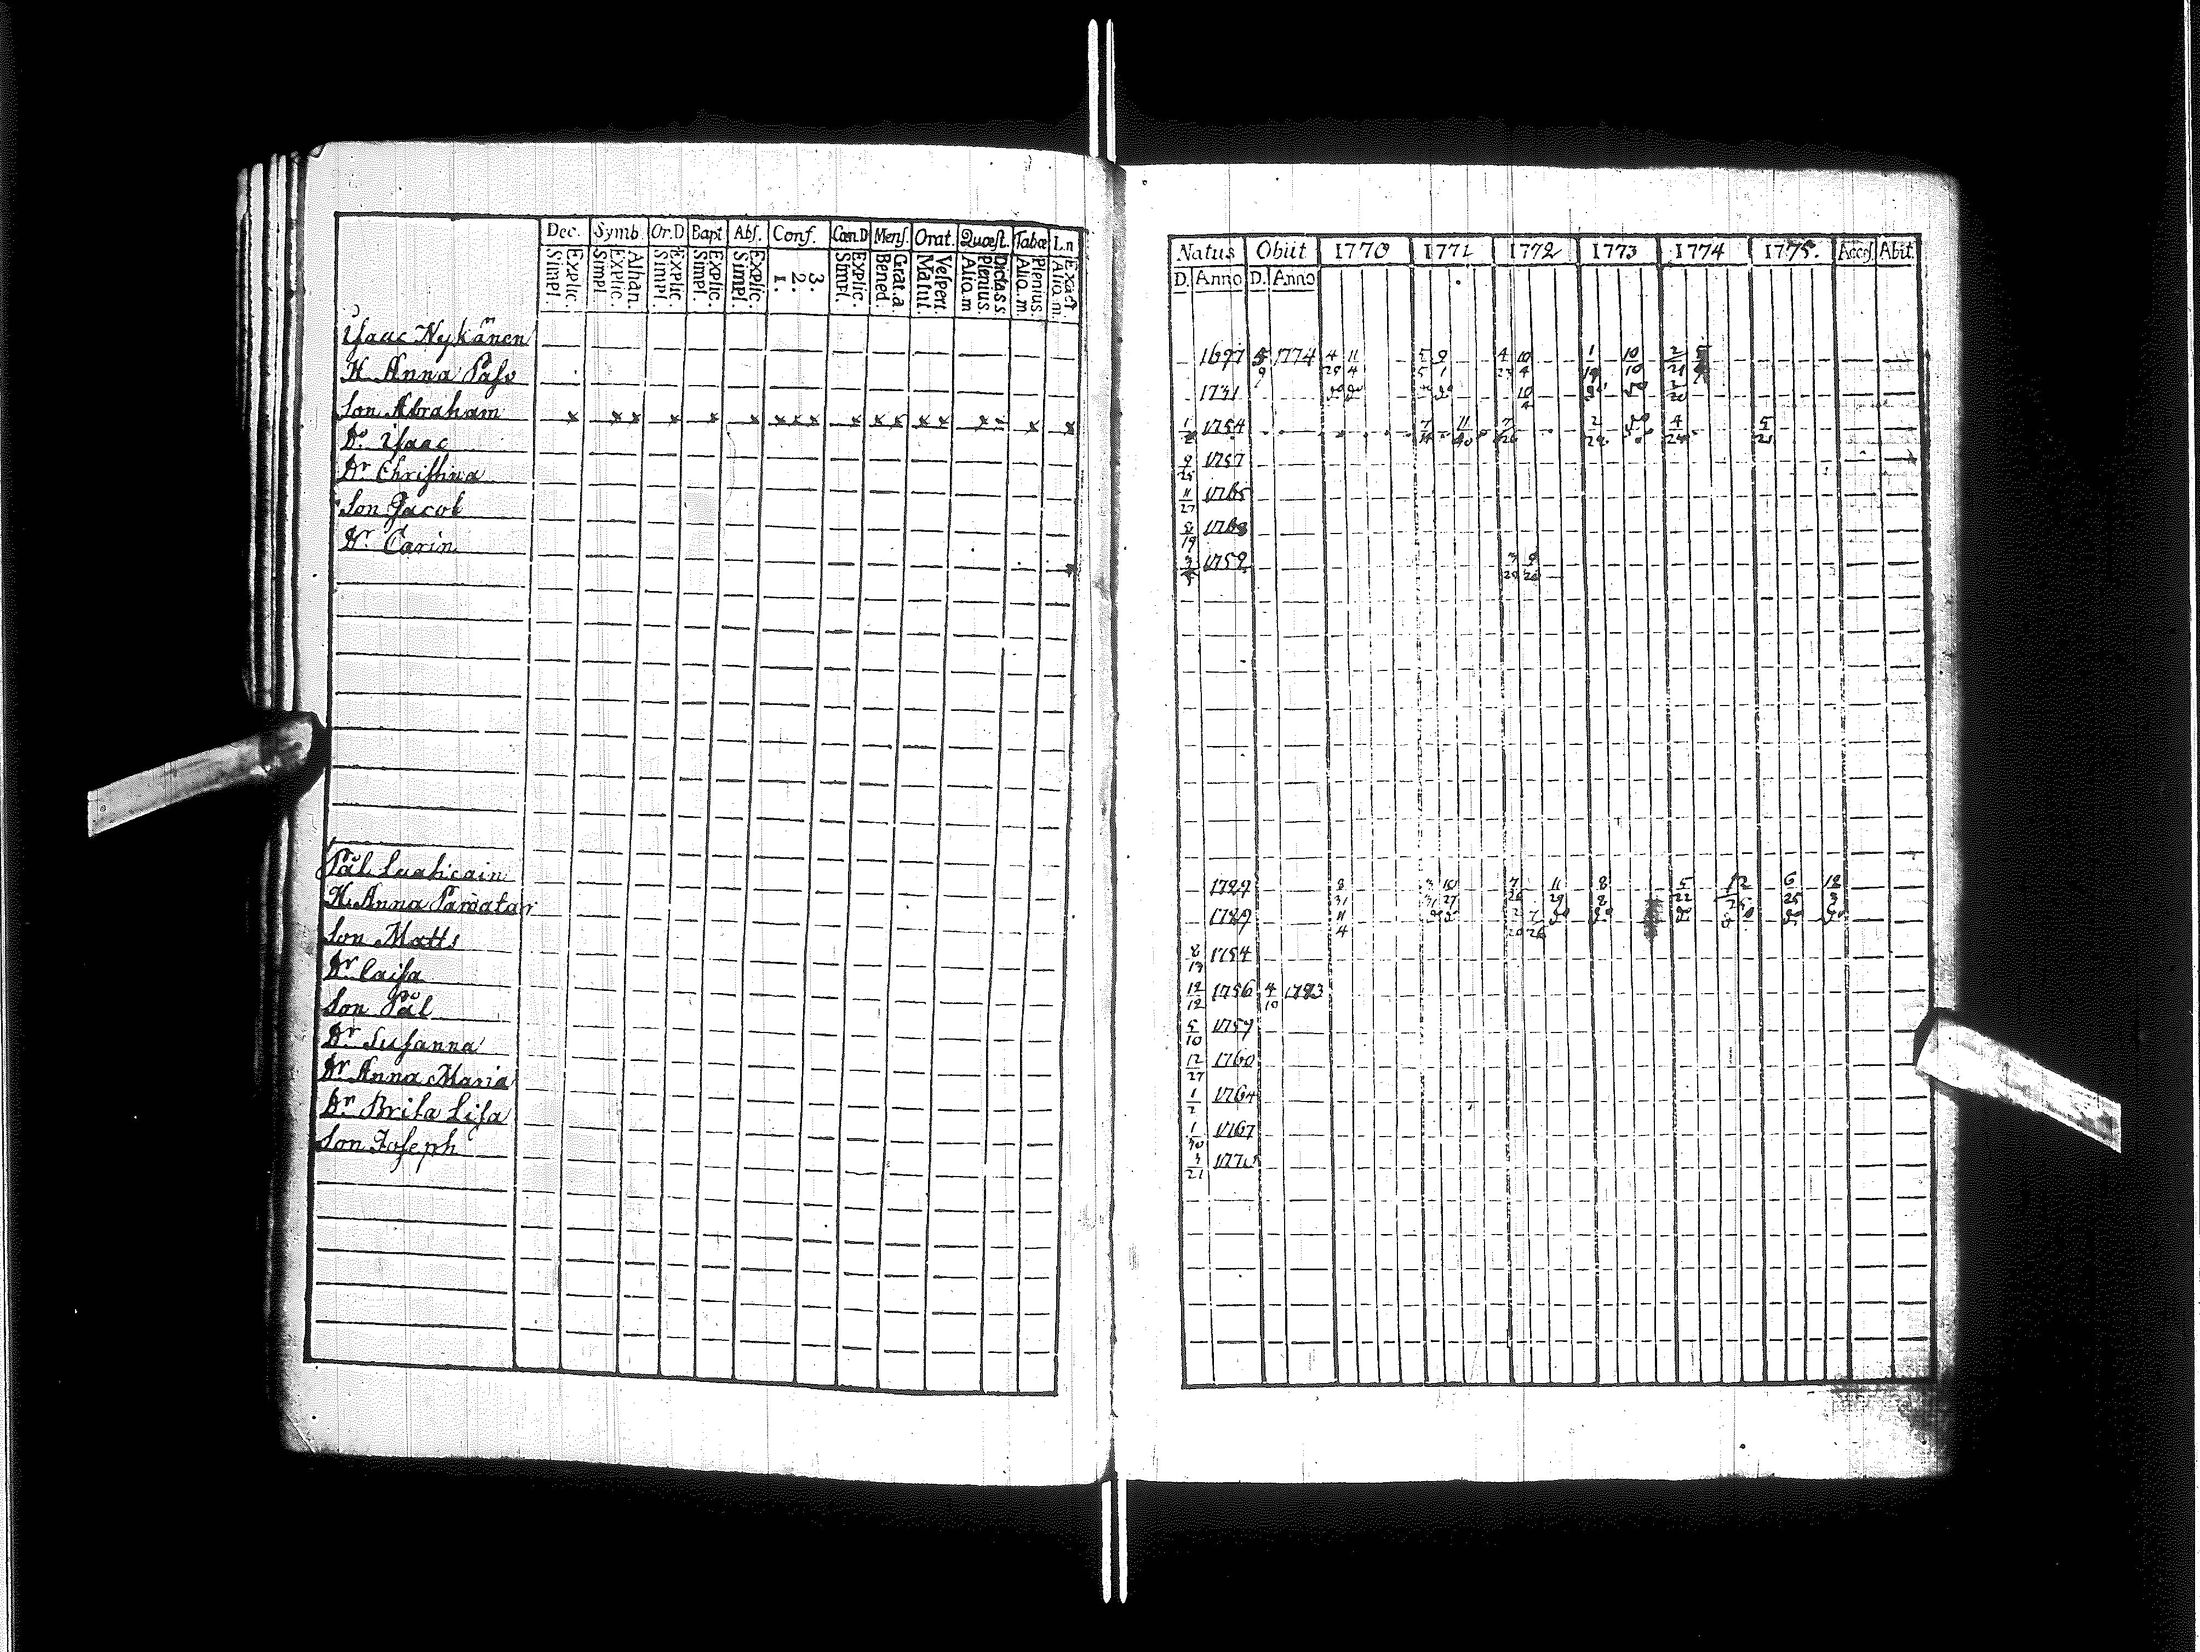 Dec. Symb. Or.D Bapt Abs. Conf. Cœn.D Mens. Orat. Quæst. Tabæ L.n
Explic. Simpl. Athan. Explic. Simpl. Explic. Simpl. Explic. Simpl. Explic. Simpl. 3. 2. 1. Explic. Simpl. Grat.a Bened. Vespert. Matut. Dicta s.s. Plenius Aliq.m Plenius Aliq.m Exact Aliq.m
Isaac Nykänen
H. Anna Paso
Son Abraham x x x x x x x x x x x x x x x x x x
Dº Isaac
Dr Christina
Son Jacob
Dr. Carin
Pål Luukcain
H. Anna Parvatar
Son Matts
Dr Caisa
Son Pål
Dr Susanna
Dr Anna Maria
Dr Brita Lisa
Son Joseph
Natus Obiit 1770 1771 1772 1773 1774 1775. Acces. Abit.
D. Anno D. Anno
1697 5/9 1774 4/29 11/4 5/5 9/1 4/23 10/4 1/19 10/10 2/21
1731
1754 7 11 7/26 2/24 4/24 5/21
9/25 1757
11/27 1765
5/19 1768
1759
1729 8/31 3/31 10/27 7/26 11/29 8/8 5/22 12 6/25 12
1729 11/4 2/20 7/26
8/13 1754
12/12 1756 4/10 1773
5/10 1757
12/27 1760
1/2 1764
1/30 1767
3/21 1770